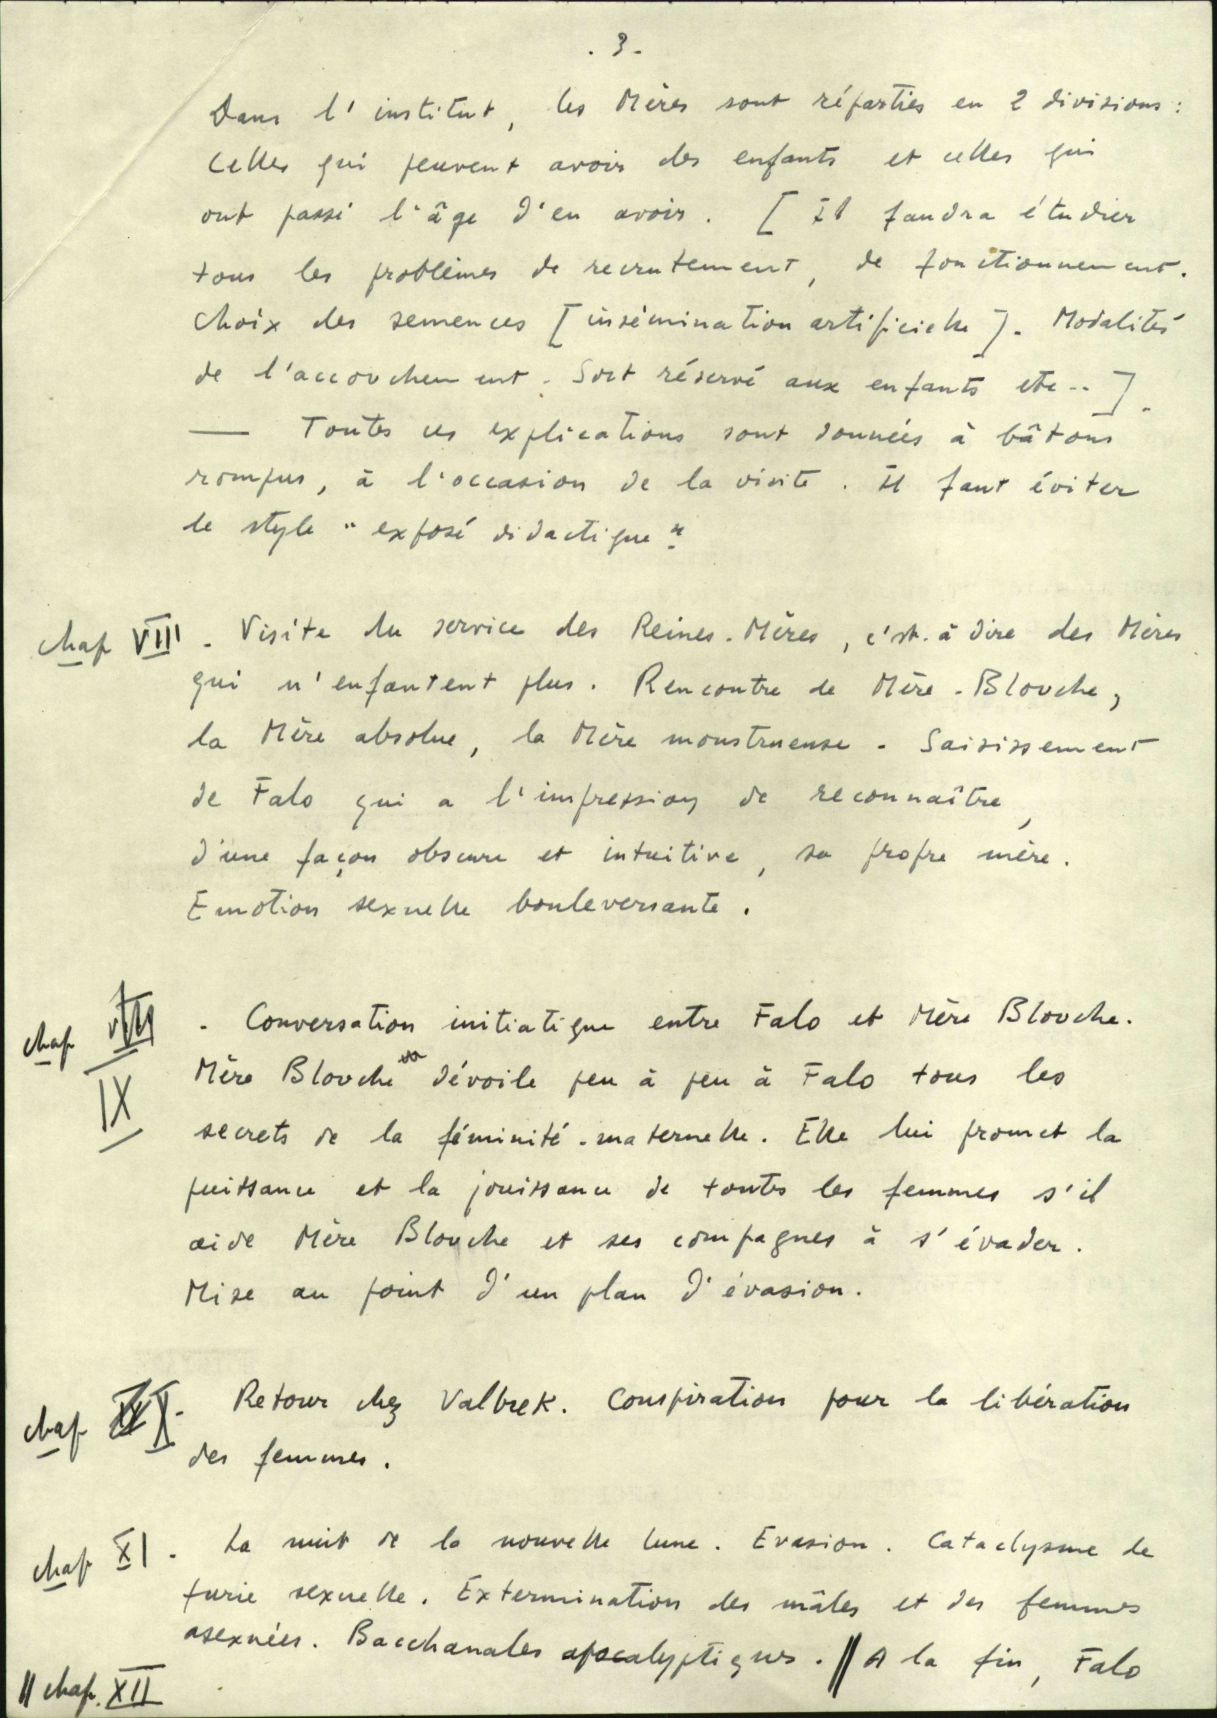 . 3 -
Dans l'institut, les Mères sont réparties en 2 divisions :
Celles qui peuvent avoir des enfants et celles qui
ont passé l'âge d'en avoir. [ Il faudra étudier
tous les problèmes de recrutement, de fonctionnement.
Choix des semences [insémination artificielle]. Modalités
de l'accouchement. Sort réservé aux enfants etc.. ].
— Toutes ces explications sont données à bâtons
rompus, à l'occasion de la visite. Il faut éviter
le style "exposé didactique".
Chap VIII . Visite du service des Reines-Mères, c'est-à-dire des Mères
qui n'enfantent plus. Rencontre de Mère-Blouche,
la Mère absolue, la Mère monstrueuse. Saisissement
de Falo qui a l'impression de reconnaître,
d'une façon obscure et intuitive, sa propre mère.
Emotion sexuelle bouleversante.
Chap VIII . Conversation initiatique entre Falo et Mère Blouche.
IX Mère Blouche dévoile peu à peu à Falo tous les
secrets de la féminité-maternelle. Elle lui promet la
puissance et la jouissance de toutes les femmes s'il
aide Mère Blouche et ses compagnes à s'évader.
Mise au point d'un plan d'évasion.
Chap X . Retour chez Valbrek. Conspiration pour la libération
des femmes.
Chap XI . La nuit de la nouvelle lune. Evasion. Cataclysme de
furie sexuelle. Extermination des mâles et des femmes
asexuées. Bacchanales apocalyptiques. || A la fin, Falo
|| Chap. XII